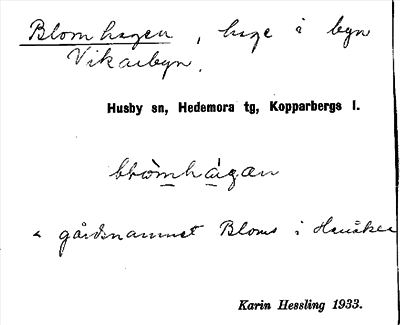 Blomhagen, hage i byn
Vikarbyn.
Husby sn, Hedemora tg, Kopparbergs l.
blòmhàgan
< gårdsnamnet Bloms i
Karin Hessling 1933.